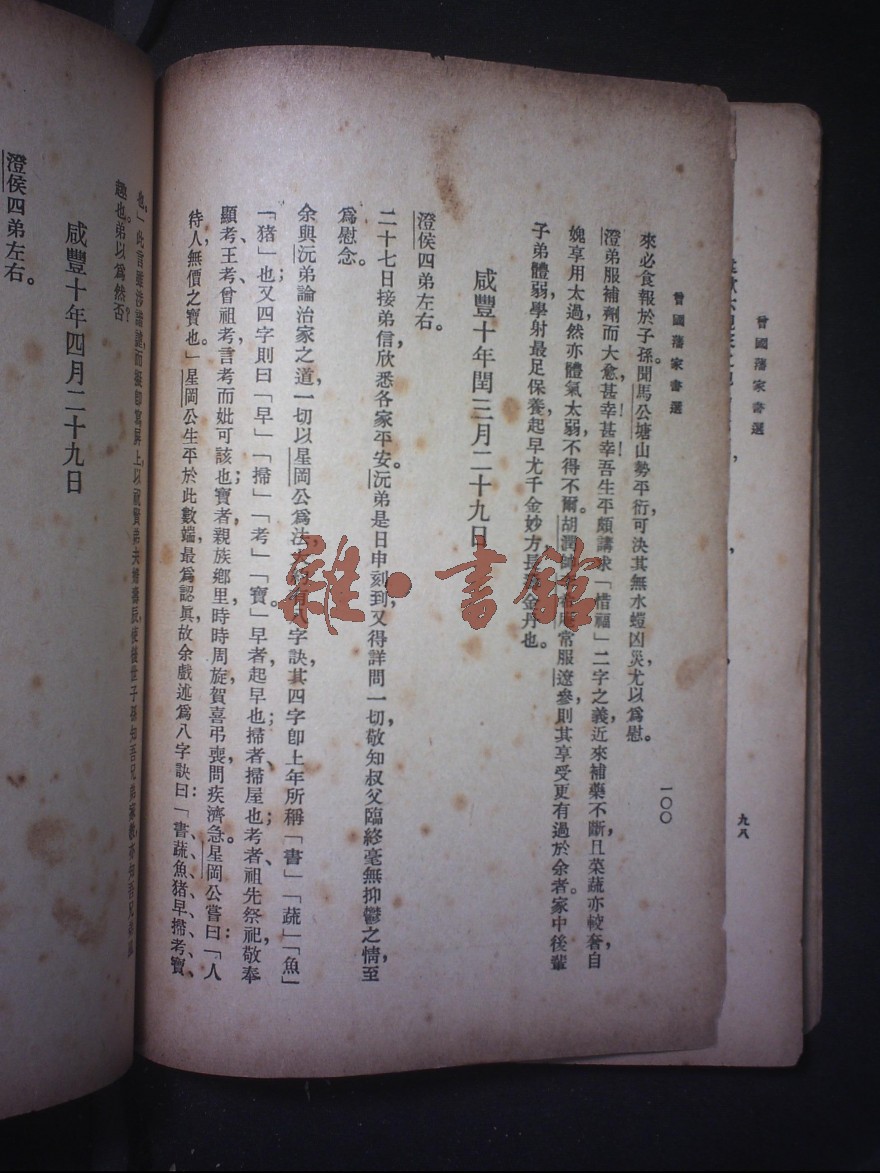 曾國藩家書選
九八
曾國藩家書選
一〇〇
來必食報於子孫。聞馬公塘山勢平衍，可決其無水蟶凶災，尤以為慰。
澄弟服補劑而大愈，甚幸！甚幸！吾生平頗講求「惜福」二字之義，近來補藥不斷，且菜蔬亦較奢，自
媿享用太過，然亦體氣太弱，不得不爾。胡潤帥常服遼參，則其享受更有過於余者。家中後輩
子弟體弱，學射最足保養，起早尤千金妙方，長金丹也。
咸豐十年閏三月二十九日
澄侯四弟左右。
二十七日接弟信，欣悉各家平安。沅弟是日申刻到，又得詳問一切，敬知叔父臨終毫無抑鬱之情，至
爲慰念。
余與沅弟論治家之道，一切以星岡公爲法，有八字訣，其四字卽上年所稱「書」「蔬」「魚」
「猪」也；又四字則曰「早」「掃」「考」「寶」。早者起早也；掃者，掃屋也；考者，祖先祭祀，敬奉
顯考王考曾祖考，言考而妣可該也；寶者，親族鄉里，時時周旋，賀喜弔喪，問疾濟急。星岡公嘗曰：「人
待人，無價之寶也。」星岡公生平於此數端，最爲認眞，故余戲述爲八字訣曰：「書、蔬、魚、猪、早、掃、考、寶
也。」此言雖涉諧謔，而擬卽寫屏上，以祝賢弟夫婦壽辰，使後世子孫知吾兄弟家
趣也。弟以爲然否？
咸豐十年四月二十九日
澄侯四弟左右。
雜·書館